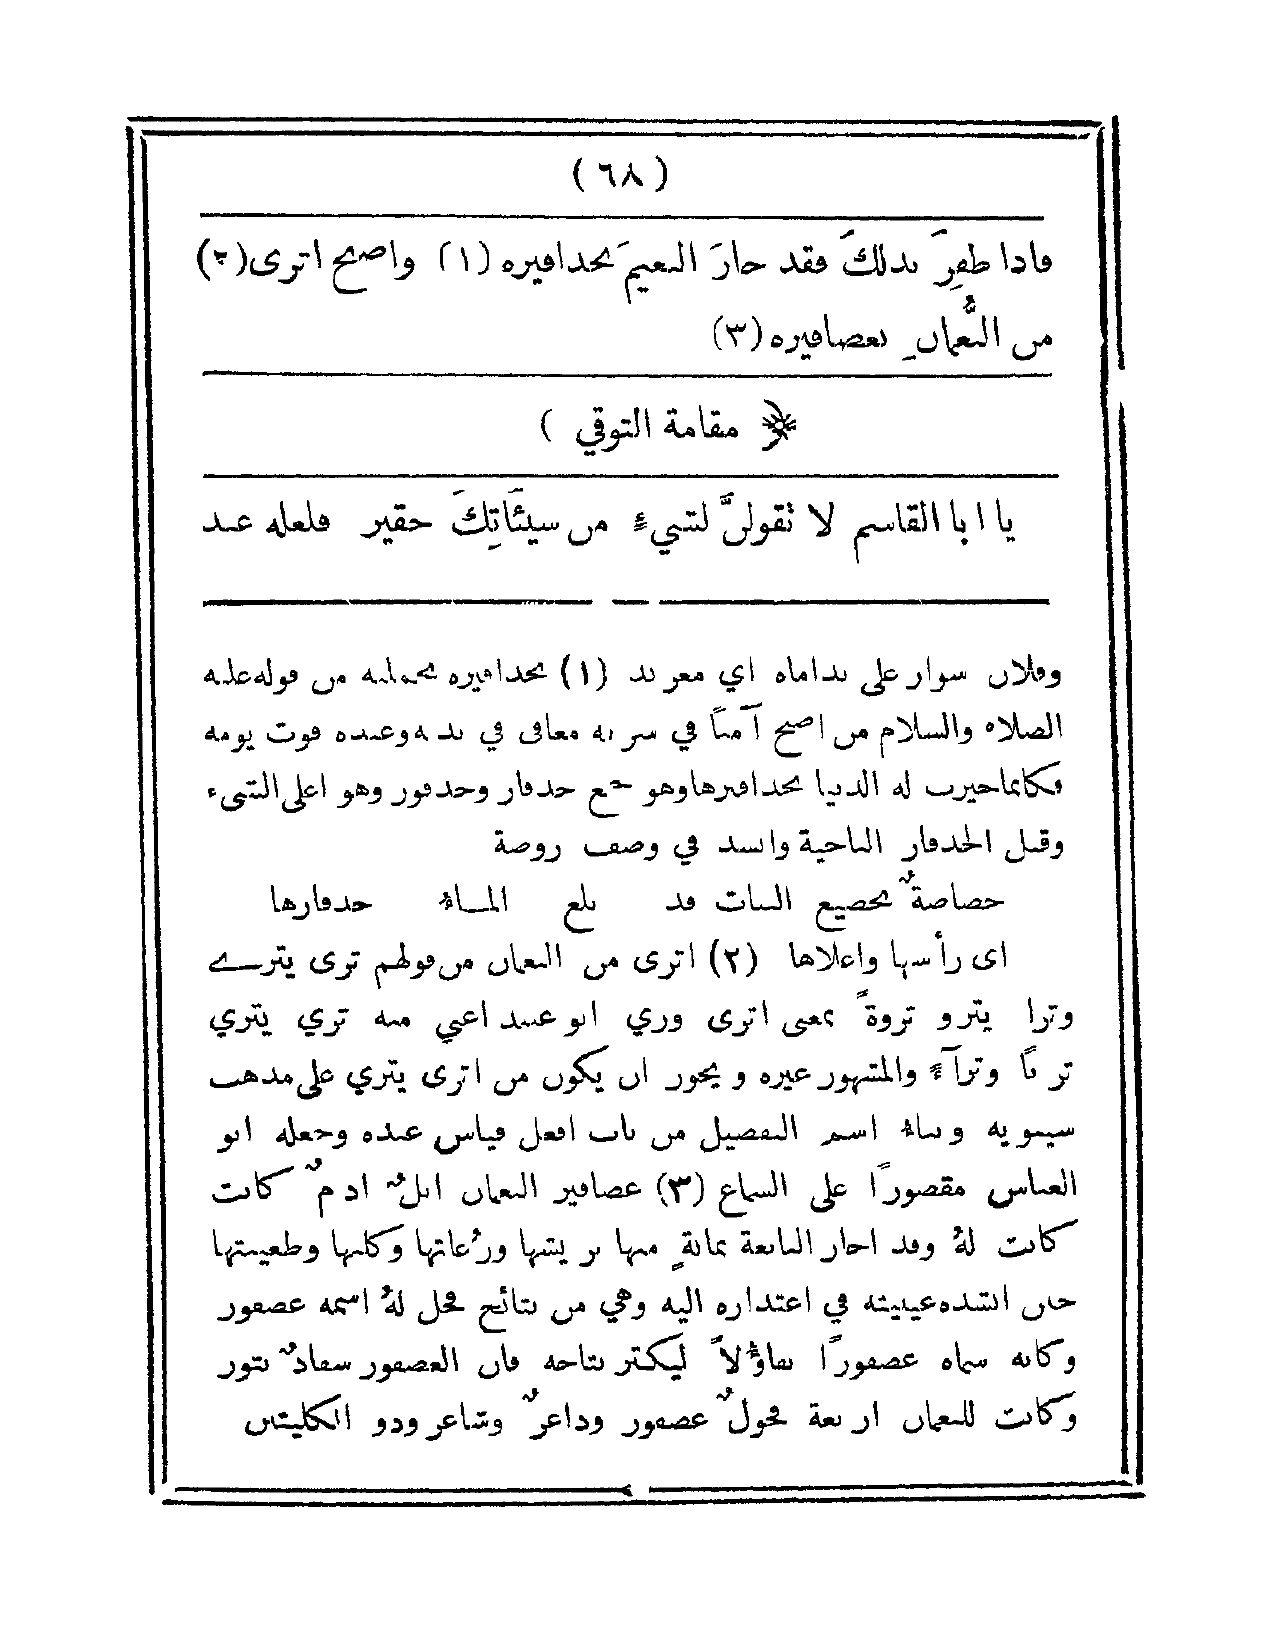 (٦٨)
فاذا ظفِرَ بذلكَ فقد حازَ النعيمَ بحذافيره (١) واصبح اثرى (٢)
من النُّعمانِ بعصافيره (٣)
﴿ مقامة التوقي )
يا ابا القاسم لا تقولنَّ لشيءٍ من سيئَاتِكَ حقير فلعله عند
وفلان سوار على نداماه اي معربد (١) بحذافيره بجملته من قوله عليه
الصلاه والسلام من اصبح آمناً في سربه معافى في بدنه وعنده قوت يومه
فكانما حيزت له الدنيا بحذافيرها وهو جمع حذفار وحذفور وهو اعلى الشيء
وقيل الحذفار الناحية وانشد في وصف روضة
خصاصةٌ بخضيع النبات قد بلغ الماء حذفارها
اى رأسها واعلاها (٢) اثرى من النعمان من قولهم ثرى يثرے
وثرا يثرو ثروةً بمعنى اثرى وري ابو عبيد اعني منه ثري يثري
ثرىً وثرآءً والمشهور غيره و يجوز ان يكون من اثرى يثري على مذهب
سيبويه وبناء اسم التفضيل من باب افعل قياس عنده وجعله ابو
العباس مقصورًا على السماع (٣) عصافير النعمان ابلٌ ادمٌ كانت
كانت لهُ وقد اجاز النابغة بمائةٍ منها بريشها ورُعاتها وكلبها وظعينتها
حين انشده عينيته في اعتذاره اليه وهي من نتائج فحل لهُ اسمه عصفور
وكانه سماه عصفورًا تفاؤُلاً ليكثر نتاجه فان العصفور سفادٌ نثور
وكانت للنعمان اربعة فحولٌ عصفور وداعرٌ وشاعر وذو الكليتين